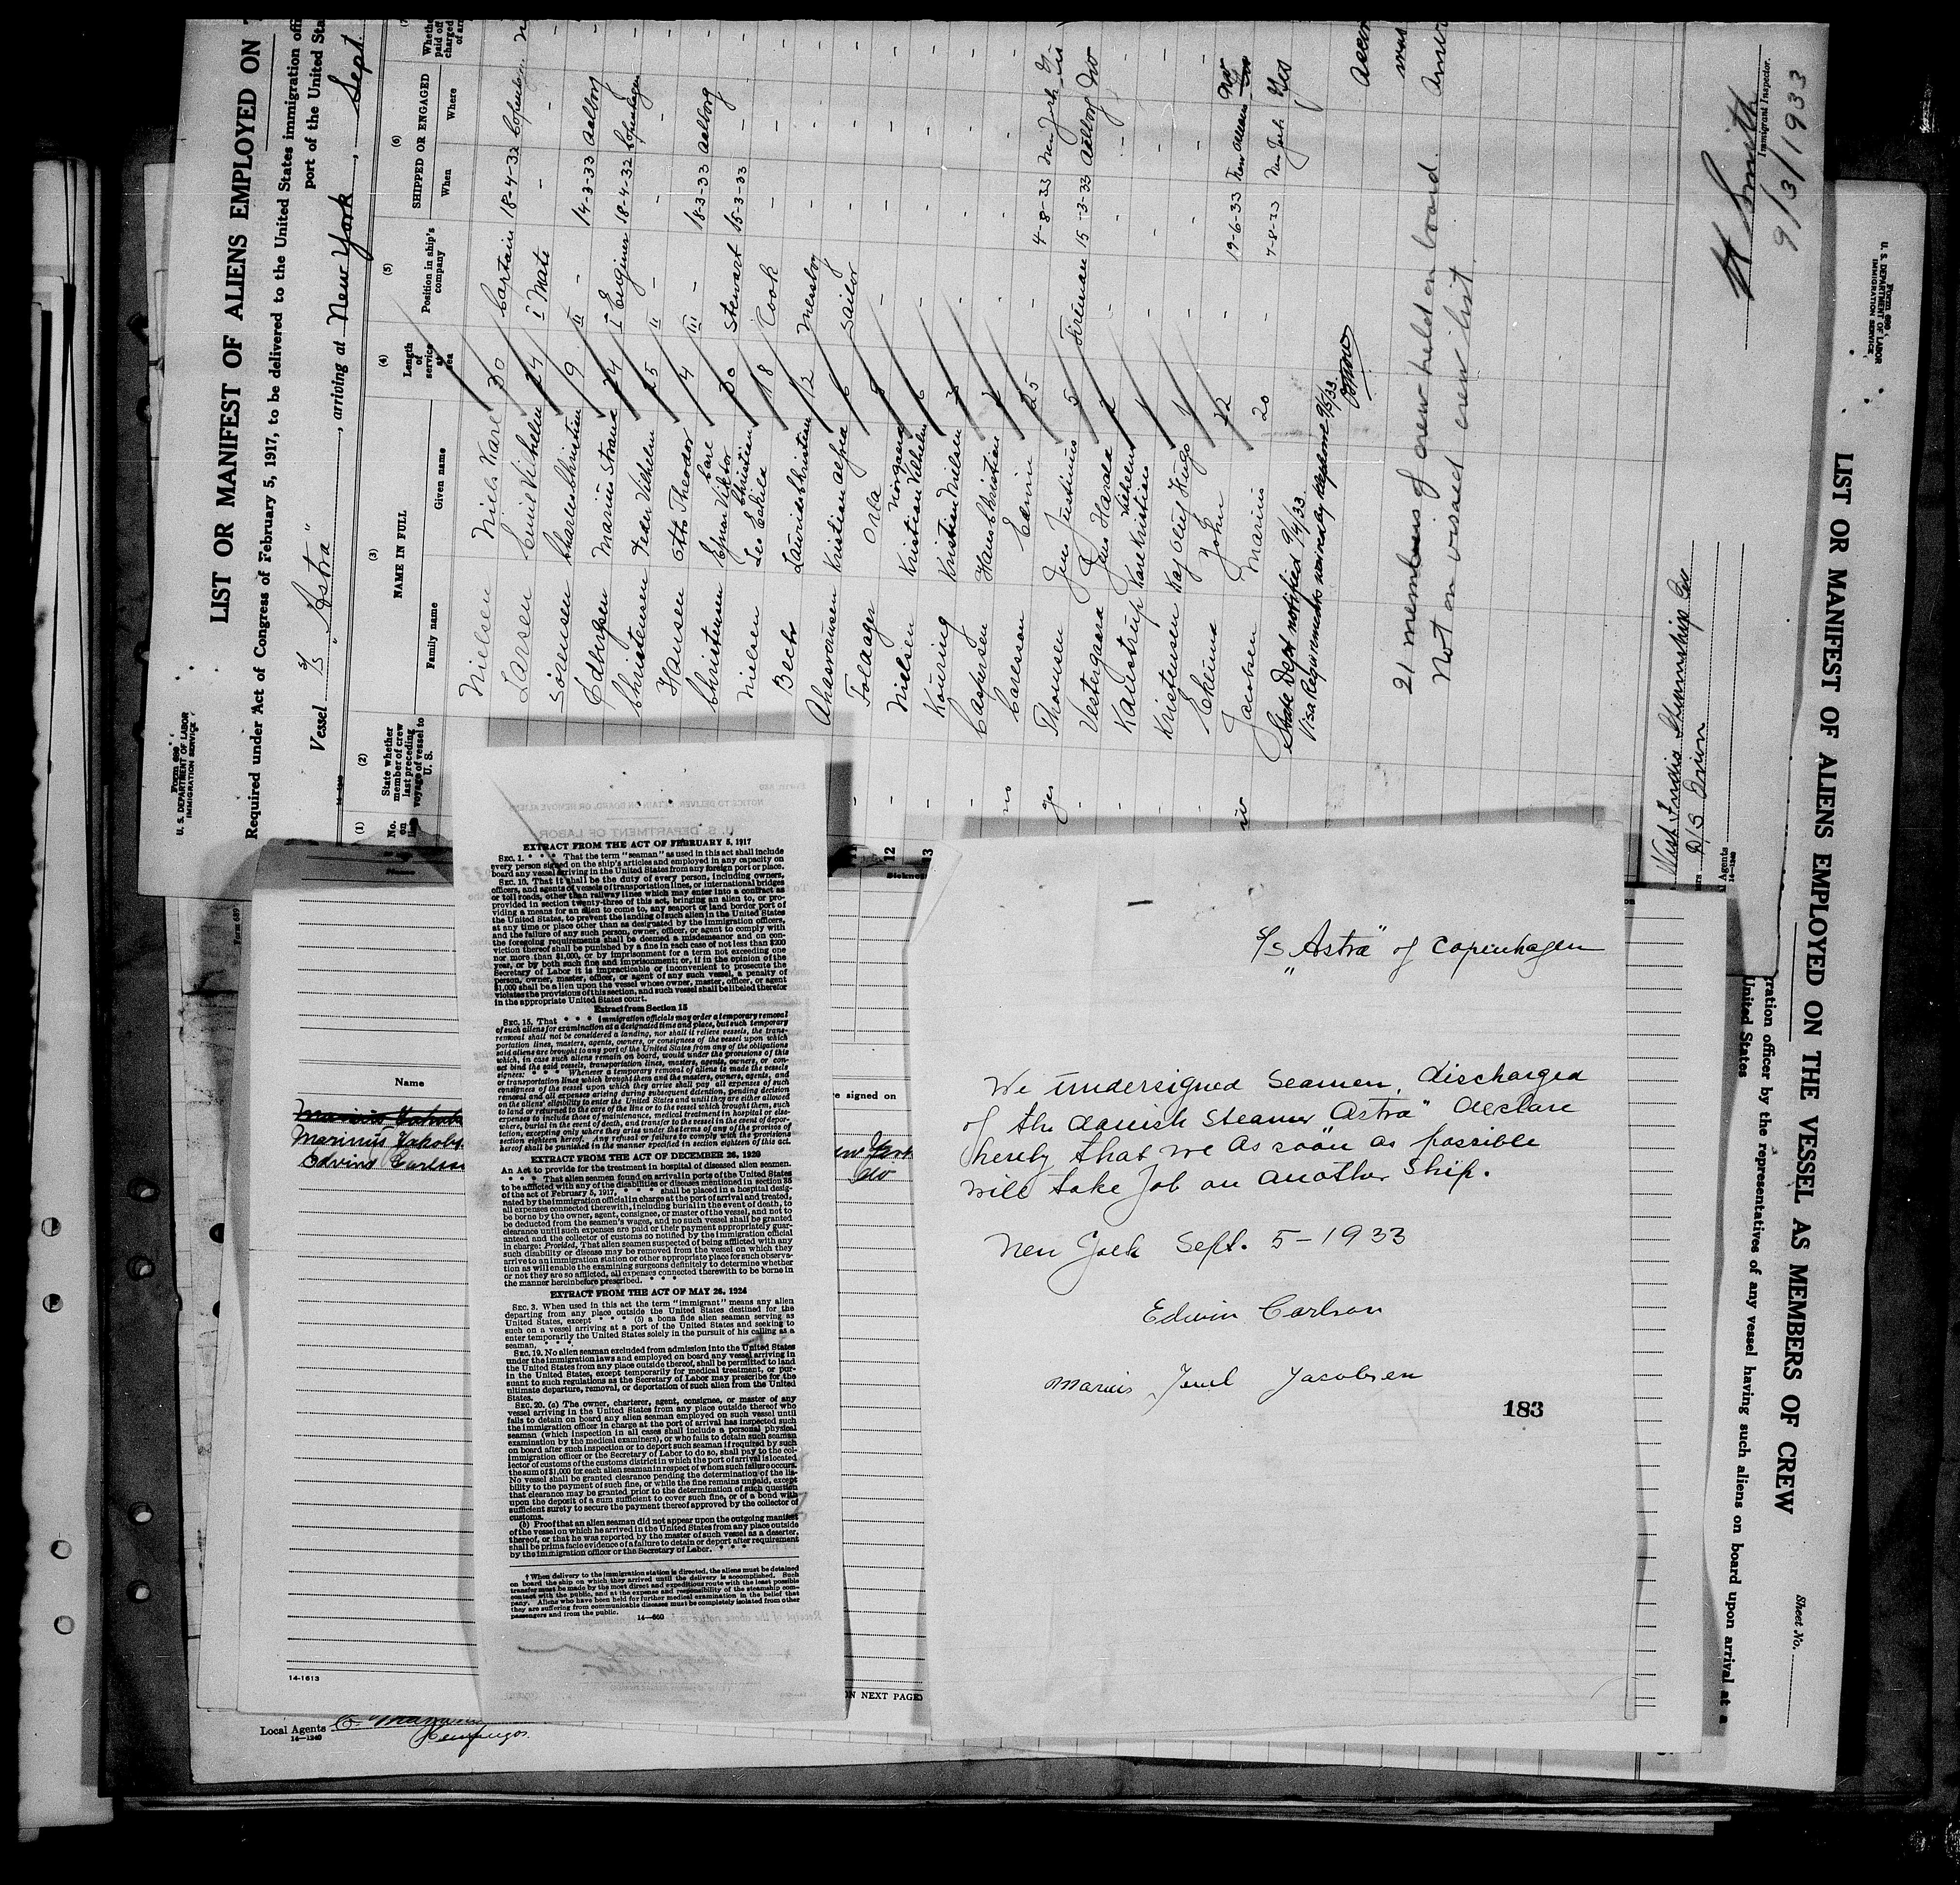 Form 689
U. S. DEPARTMENT OF LABOR
IMMIGRATION SERVICE
LIST OR MANIFEST OF ALIENS EMPLOYED ON
Required under Act of Congress of February 5, 1917, to be delivered to the United States immigration
port of the United
Vessel S/S "Astra", arriving at New York, Sept.
14-1240
(1)
No. on
(2)
State whether member of crew last preceding voyage of vessel to U. S.
(3)
NAME IN FULL
Family name
Given name
(4)
Length of service at sea
(5)
Position in ship's company
(6)
SHIPPED OR ENGAGED
When
Where
Nielsen Niels Karl 30 Captain 18-4-32 Copenhagen
Larsen Emil Vilhelm 24 I Mate - -
Sörensen Charles Christian 9 II - 14-3-33 Aalborg
Edbirksen Marius Strand 24 I Engineer 18-4-32 Copenhagen
Christensen Peder Vilhelm 25 II - - -
Hansen Otto Theodor 4 III - 18-3-33 Aalborg
Christensen Ejnar Viktor Carl 30 Stewart 15-3-33
Nielsen Leo Eskild Christian 18 Cook - -
Bech Laurids Christian 12 Messboy - -
Ahasverusen Kristian Alfred 6 Sailor - -
Folaager Orla 8 - - -
Nielsen Kristian Vilhelm Norgaard 6 - - -
Kouring Kristian Nielsen 3 - - -
Caspersen Hans Christian - - -
no Carlsson Edvin 25 - 4-8-33 New York
yes Thomsen Jens Justinus 5 Fireman 15-3-33 Aalborg No
Vestergaard Jens Harald 2 - - -
Kaustrup Karl Kristian Vilhelm 1 - - -
Kristensen Kaj Oluf Hugo 1 - - -
Ekelund John 22 - 19-6-33 New Orleans No
Jacobsen Marius 20 - 7-8-33 New York Yes
State Dept notified 9/4/33
Visa Requirements waived by telephone 9/5/33
21 members of crew held on board.
Not on visaed crew list.
H Smith
Immigrant Inspector.
9/3/1933
West India Steamship Co
D/S Orion
Agents
12
13
EXTRACT FROM THE ACT OF FEBRUARY 5, 1917
SEC. 1. * * * That the term "seaman" as used in this act shall include
every person signed on the ship's articles and employed in any capacity on
board any vessel arriving in the United States from any foreign port or place.
SEC. 10. That it shall be the duty of every person, including owners,
officers, and agents of vessels of transportation lines, or international bridges
or toll roads, other than railway lines which may enter into a contract as
provided in section twenty-three of this act, bringing an alien to, or pro-
viding a means for an alien to come to, any seaport or land border port of
the United States, to prevent the landing of such alien in the United States
at any time or place other than as designated by the immigration officers,
and the failure of any such person, owner, officer, or agent to comply with
the foregoing requirements shall be deemed a misdemeanor and on con-
viction thereof shall be punished by a fine in each case of not less than $200
nor more than $1,000, or by imprisonment for a term not exceeding one
year, or by both such fine and imprisonment; or, if in the opinion of the
Secretary of Labor it is impracticable or inconvenient to prosecute the
person, owner, master, officer, or agent of any such vessel, a penalty of
$1,000 shall be a lien upon the vessel whose owner, master, officer, or agent
violates the provisions of this section, and such vessel shall be libeled therefor
in the appropriate United States court.
Extract from Section 15
SEC. 15. That * * * immigration officials may order a temporary removal
of such aliens for examination at a designated time and place, but such temporary
removal shall not be considered a landing, nor shall it relieve vessels, the trans-
portation lines, masters, agents, owners, or consignees of the vessel upon which
said aliens are brought to any port of the United States from any of the obligations
which, in case such aliens remain on board, would under the provisions of this
act bind the said vessels, transportation lines, masters, agents, owners, or con-
signees: * * * Whenever a temporary removal of aliens is made the vessels
or transportation lines which brought them and the masters, owners, agents, and
consignees of the vessel upon which they arrive shall pay all expenses of such
removal and all expenses arising during subsequent detention, pending decision
on the aliens' eligibility to enter the United States and until they are either allowed
to land or returned to the care of the line or to the vessel which brought them, such
expenses to include those of maintenance, medical treatment in hospital or else-
where, burial in the event of death, and transfer to the vessel in the event of depor-
tation, excepting only where they arise under the terms of any of the provisos of
section eighteen hereof. Any refusal or failure to comply with the provisions
hereof shall be punished in the manner specified in section eighteen of this act.
EXTRACT FROM THE ACT OF DECEMBER 26, 1920
An Act to provide for the treatment in hospital of diseased alien seamen.
* * * That alien seamen found on arrival in ports of the United States
to be afflicted with any of the disabilities or diseases mentioned in section 35
of the act of February 5, 1917, * * * shall be placed in a hospital desig-
nated by the immigration official in charge at the port of arrival and treated,
all expenses connected therewith, including burial in the event of death, to
be borne by the owner, agent, consignee, or master of the vessel, and not to
be deducted from the seamen's wages, and no such vessel shall be granted
clearance until such expenses are paid or their payment appropriately guar-
anteed and the collector of customs so notified by the immigration official
in charge: Provided, That alien seamen suspected of being afflicted with any
such disability or disease may be removed from the vessel on which they
arrive to an immigration station or other appropriate place for such observa-
tion as will enable the examining surgeons definitely to determine whether
or not they are so afflicted, all expenses connected therewith to be borne in
the manner hereinbefore prescribed. * * *
EXTRACT FROM THE ACT OF MAY 26, 1924
SEC. 3. When used in this act the term "immigrant" means any alien
departing from any place outside the United States destined for the
United States, except * * * (5) a bona fide alien seaman serving as
such on a vessel arriving at a port of the United States and seeking to
enter temporarily the United States solely in the pursuit of his calling as a
seaman. * * *
SEC. 19. No alien seaman excluded from admission into the United States
under the immigration laws and employed on board any vessel arriving in
the United States from any place outside thereof, shall be permitted to land
in the United States, except temporarily for medical treatment, or pur-
suant to such regulations as the Secretary of Labor may prescribe for the
ultimate departure, removal, or deportation of such alien from the United
States.
SEC. 20. (a) The owner, charterer, agent, consignee, or master of any
vessel arriving in the United States from any place outside thereof who
fails to detain on board any alien seaman employed on such vessel until
the immigration officer in charge at the port of arrival has inspected such
seaman (which inspection in all cases shall include a personal physical
examination by the medical examiners), or who fails to detain such seaman
on board after such inspection or to deport such seaman if required by such
immigration officer or the Secretary of Labor to do so, shall pay to the col-
lector of customs of the customs district in which the port of arrival is located
the sum of $1,000 for each alien seaman in respect of whom such failure occurs.
No vessel shall be granted clearance pending the determination of the lia-
bility to the payment of such fine, or while the fine remains unpaid, except
that clearance may be granted prior to the determination of such question
upon the deposit of a sum sufficient to cover such fine, or of a bond with
sufficient surety to secure the payment thereof approved by the collector of
customs.
(b) Proof that an alien seaman did not appear upon the outgoing manifest
of the vessel on which he arrived in the United States from any place outside
thereof, or that he was reported by the master of such vessel as a deserter,
shall be prima facie evidence of a failure to detain or deport after requirement
by the immigration officer or the Secretary of Labor. * * *
† When delivery to the immigration station is directed, the aliens must be detained
on board the ship on which they arrived until the delivery is accomplished. Such
transfer must be made by the most direct and expeditious route with the least possible
contact with the public, and at the expense and responsibility of the steamship com-
pany. Aliens who have been held for further medical examination in the belief that
they are suffering from communicable diseases must be completely isolated from other
passengers and from the public.
14-660
Name
Marinus Jakobs
Edvind Carlson
signed on
New York
do
14-1613
ON NEXT PAGE
Local Agents
14-1240
S/S "Astra" of Copenhagen
We undersigned seamen, discharged
of the danish steamer "Astra" declare
hereby that we as soon as possible
will take Job on another ship.
New York Sept. 5-1933
Edwin Carlson
Marius Juul Jacobsen
183
Form 689
U. S. DEPARTMENT OF LABOR
IMMIGRATION SERVICE
LIST OR MANIFEST OF ALIENS EMPLOYED ON THE VESSEL AS MEMBERS OF CREW
ration officer by the representatives of any vessel having such aliens on board upon arrival at a
United States
Sheet No.